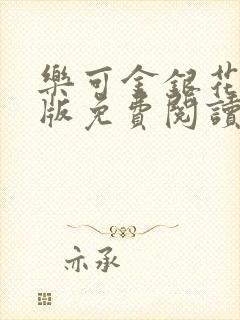 樂可金銀花
版免費閱讀
亦承